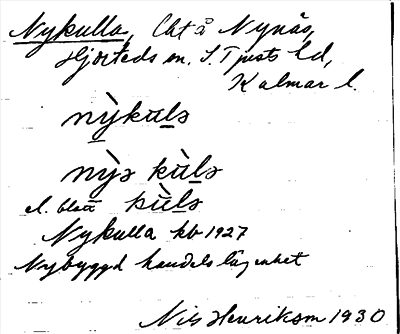 Nykulla, Lht å Nynäs,
Hjorteds sn. S. Tjusts hd,
Kalmar l.
nỳkulə
nỳə kùlə
el. blott kùlə
Nykulla kb 1927
Nybyggd handelslägenhet
Nils Henrikson 1930